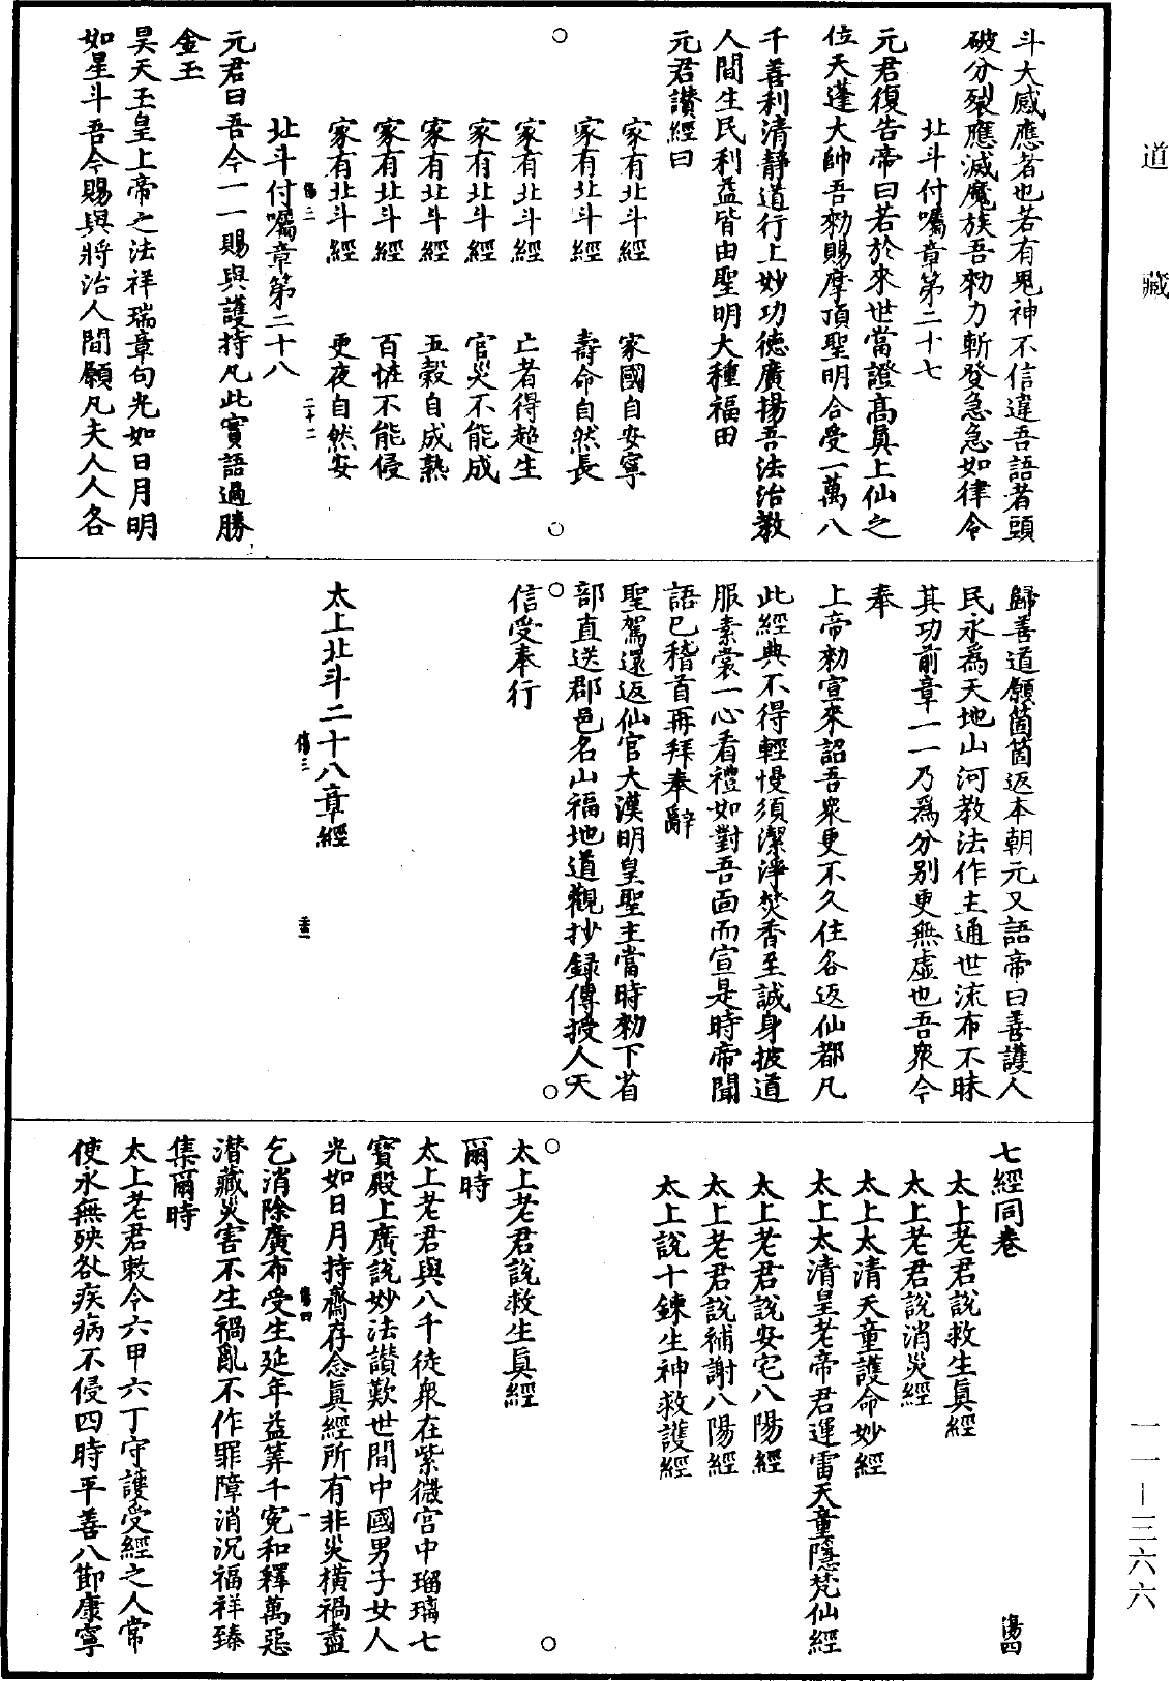 道藏
斗大感應者也若有鬼神不信違吾語者頭
破分裂應滅魔族吾勑力斬發急急如律令
北斗付囑章第二十七
元君復告帝曰若於來世當證髙眞上仙之
位天蓬大帥吾勑賜摩頂聖明合受一萬八
千善利清靜道行上妙功德廣揚吾法治教
人間生民利益皆由聖明大種福田
元君讃經曰
家有北斗經　家國自安寧
家有北斗經　壽命自然長
家有北斗經　亡者得超生
家有北斗經　官災不能成
家有北斗經　五穀自成熟
家有北斗經　百怪不能侵
家有北斗經　更夜自然安
傷三　二十二
北斗付囑章第二十八
元君曰吾今一一賜與護持凡此寳語過勝
金玉
昊天玉皇上帝之法祥瑞章句光如日月明
如星斗吾今賜與將治人間願凡夫人人各
歸善道願箇箇返本朝元又語帝曰善護人
民永爲天地山河教法作主通世流布不昧
其功前章一一乃爲分别更無虚也吾衆今
奉
上帝勑宣來詔吾衆更不久住各返仙都凡
此經典不得輕慢須潔淨焚香至誠身披道
服素裳一心看禮如對吾面而宣是時帝聞
語巳稽首再拜奉辭
聖駕還返仙官大漢明皇聖主當時勑下省
部直送郡邑名山福地道觀抄録傳授人天
信受奉行
太上北斗二十八章經
傷三
七經同卷　傷四
太上老君說救生眞經
太上老君說消災經
太上太清天童護命妙經
太上太清皇老帝君運雷天童隱梵仙經
太上老君說安宅八陽經
太上老君說補謝八陽經
太上說十鍊生神救護經
太上老君說救生眞經
爾時
太上老君與八千徒衆在紫微宫中瑠璃七
寳殿上廣說妙法讃歎世間中國男子女人
光如日月持齋存念眞經所有非災橫禍盡
傷四　一
乞消除廣布受生延年益筭千寃和釋萬惡
潜藏災害不生禍亂不作罪障消況福祥臻
集爾時
太上老君敕令六甲六丁守護受經之人常
使永無殃咎疾病不侵四時平善八節康寧
一一－三六六